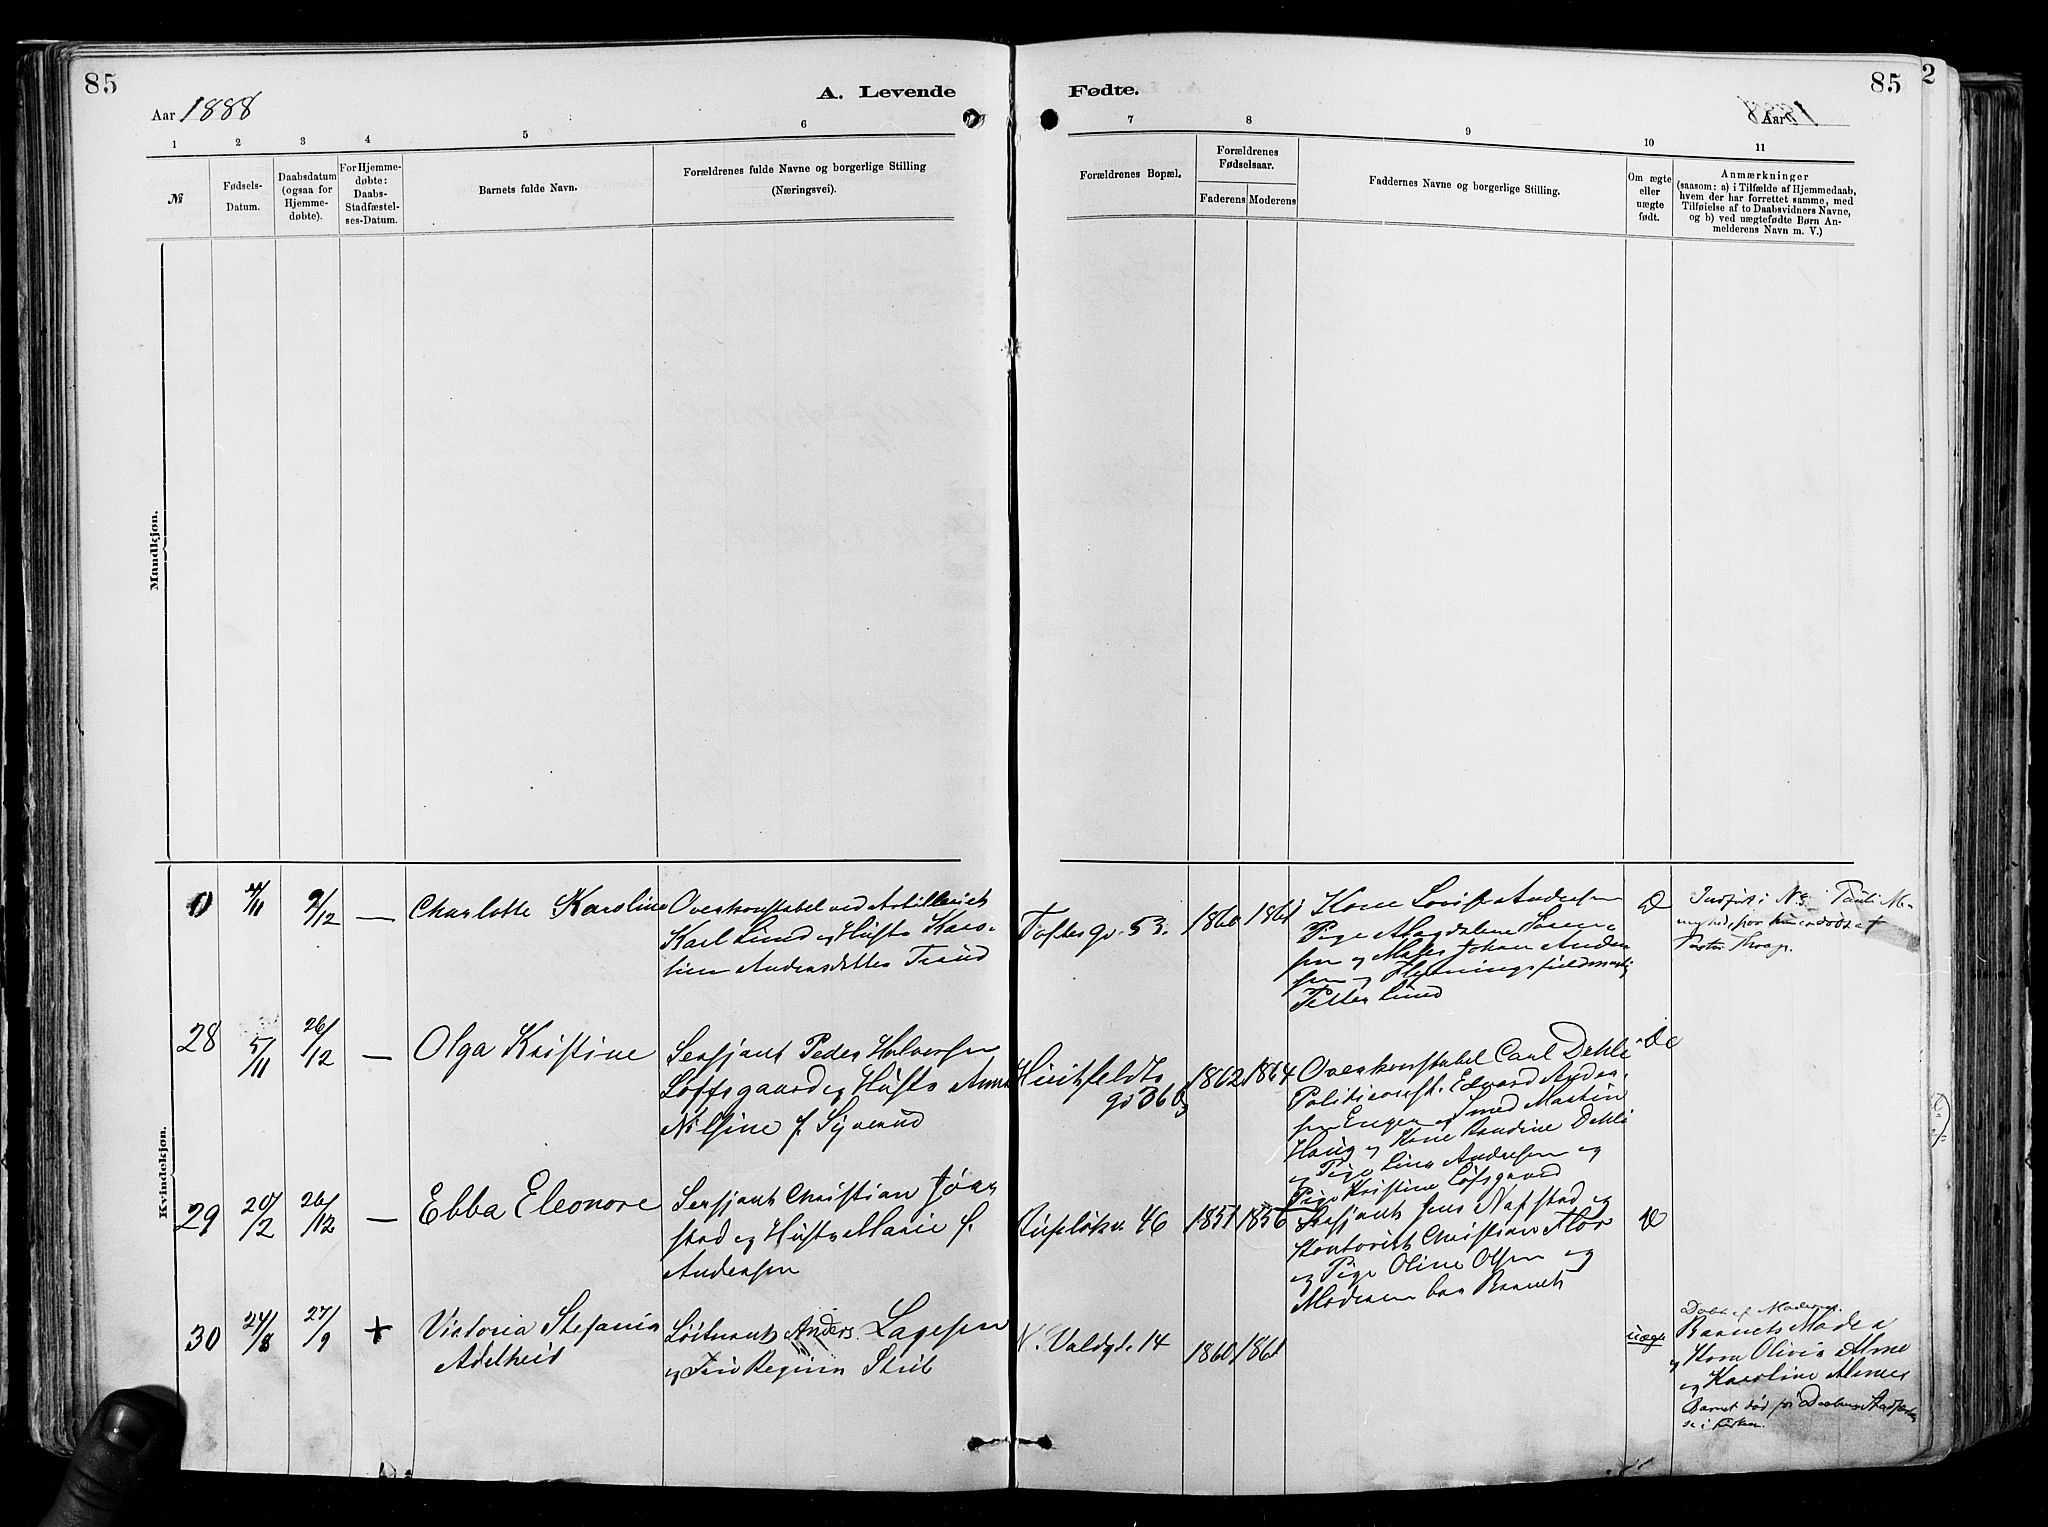 85
Aar 1888
A. Levende
Fødte.
85
2
Aar 1888
1 2 3 4 5 6 7 8 9 10 11
№
Fødsels-
Datum.
Daabsdatum
(ogsaa for
Hjemme-
døbte).
For Hjemme-
døbte:
Daabs-
Stadfæstel-
ses-Datum.
Barnets fulde Navn.
Forældrenes fulde Navne og borgerlige Stilling
(Næringsvei).
Forældrenes Bopæl.
Forældrenes
Fødselsaar.
Faderens Moderens
Faddernes Navne og borgerlige Stilling.
Om ægte
eller
uægte
født.
Anmærkninger
(saasom: a) i Tilfælde af Hjemmedaab,
hvem der har forrettet samme, med
Tilføielse af to Daabsvidners Navne,
og b) ved uægtefødte Børn An-
melderens Navn m. V.)
Mandkjøn.
Kvindekjøn.
0
4/11
9/12
—
Charlotte Karoline
Overkonstabel ved Artilleriet
Karl Lund og Hustr Karo-
line Andersdatter
Toftesgd. 53.
1860
1861
Kone Lovise Andersen
Pige Magdalene Soren-
sen og Johan Ander
sen og
Petter Lund
28
5/11
26/12
—
Olga Kristine
Sersjant Peder Halvorsen
Loffsgaard og Hustr Anna
Nilsine f. Syverud
Huitfeldts
gd 36
1862
1864
Overkonstabel Carl Dehli
Politikonst. Edvard Ander-
sen Engen og Smed Martin
Haug og Kone Randine Dehli
og Pige Lina Andersen og
Pige Kristine Lofsgaard
29
20/2
26/12
—
Ebba Eleonore
Sersjant Christian
stad og Hustr Marie f.
Andersen
46
1851
1856
Sersjant Jens Nafstad og
Kontorist Christian Flor
og Pige Oline Olsen og
Moderen bar Barnet
30
24/8
27/9
+
Victoria Stefania
Adelheid
Løitnant Anders Lagesen
og Regina Strib
N. Valdgd. 14
1860
1861
uægte
Døbt af Moderen.
Barnets Moder
og Kone Olivia Alme
og Karoline Almes
Barnet død før
i Kirken.